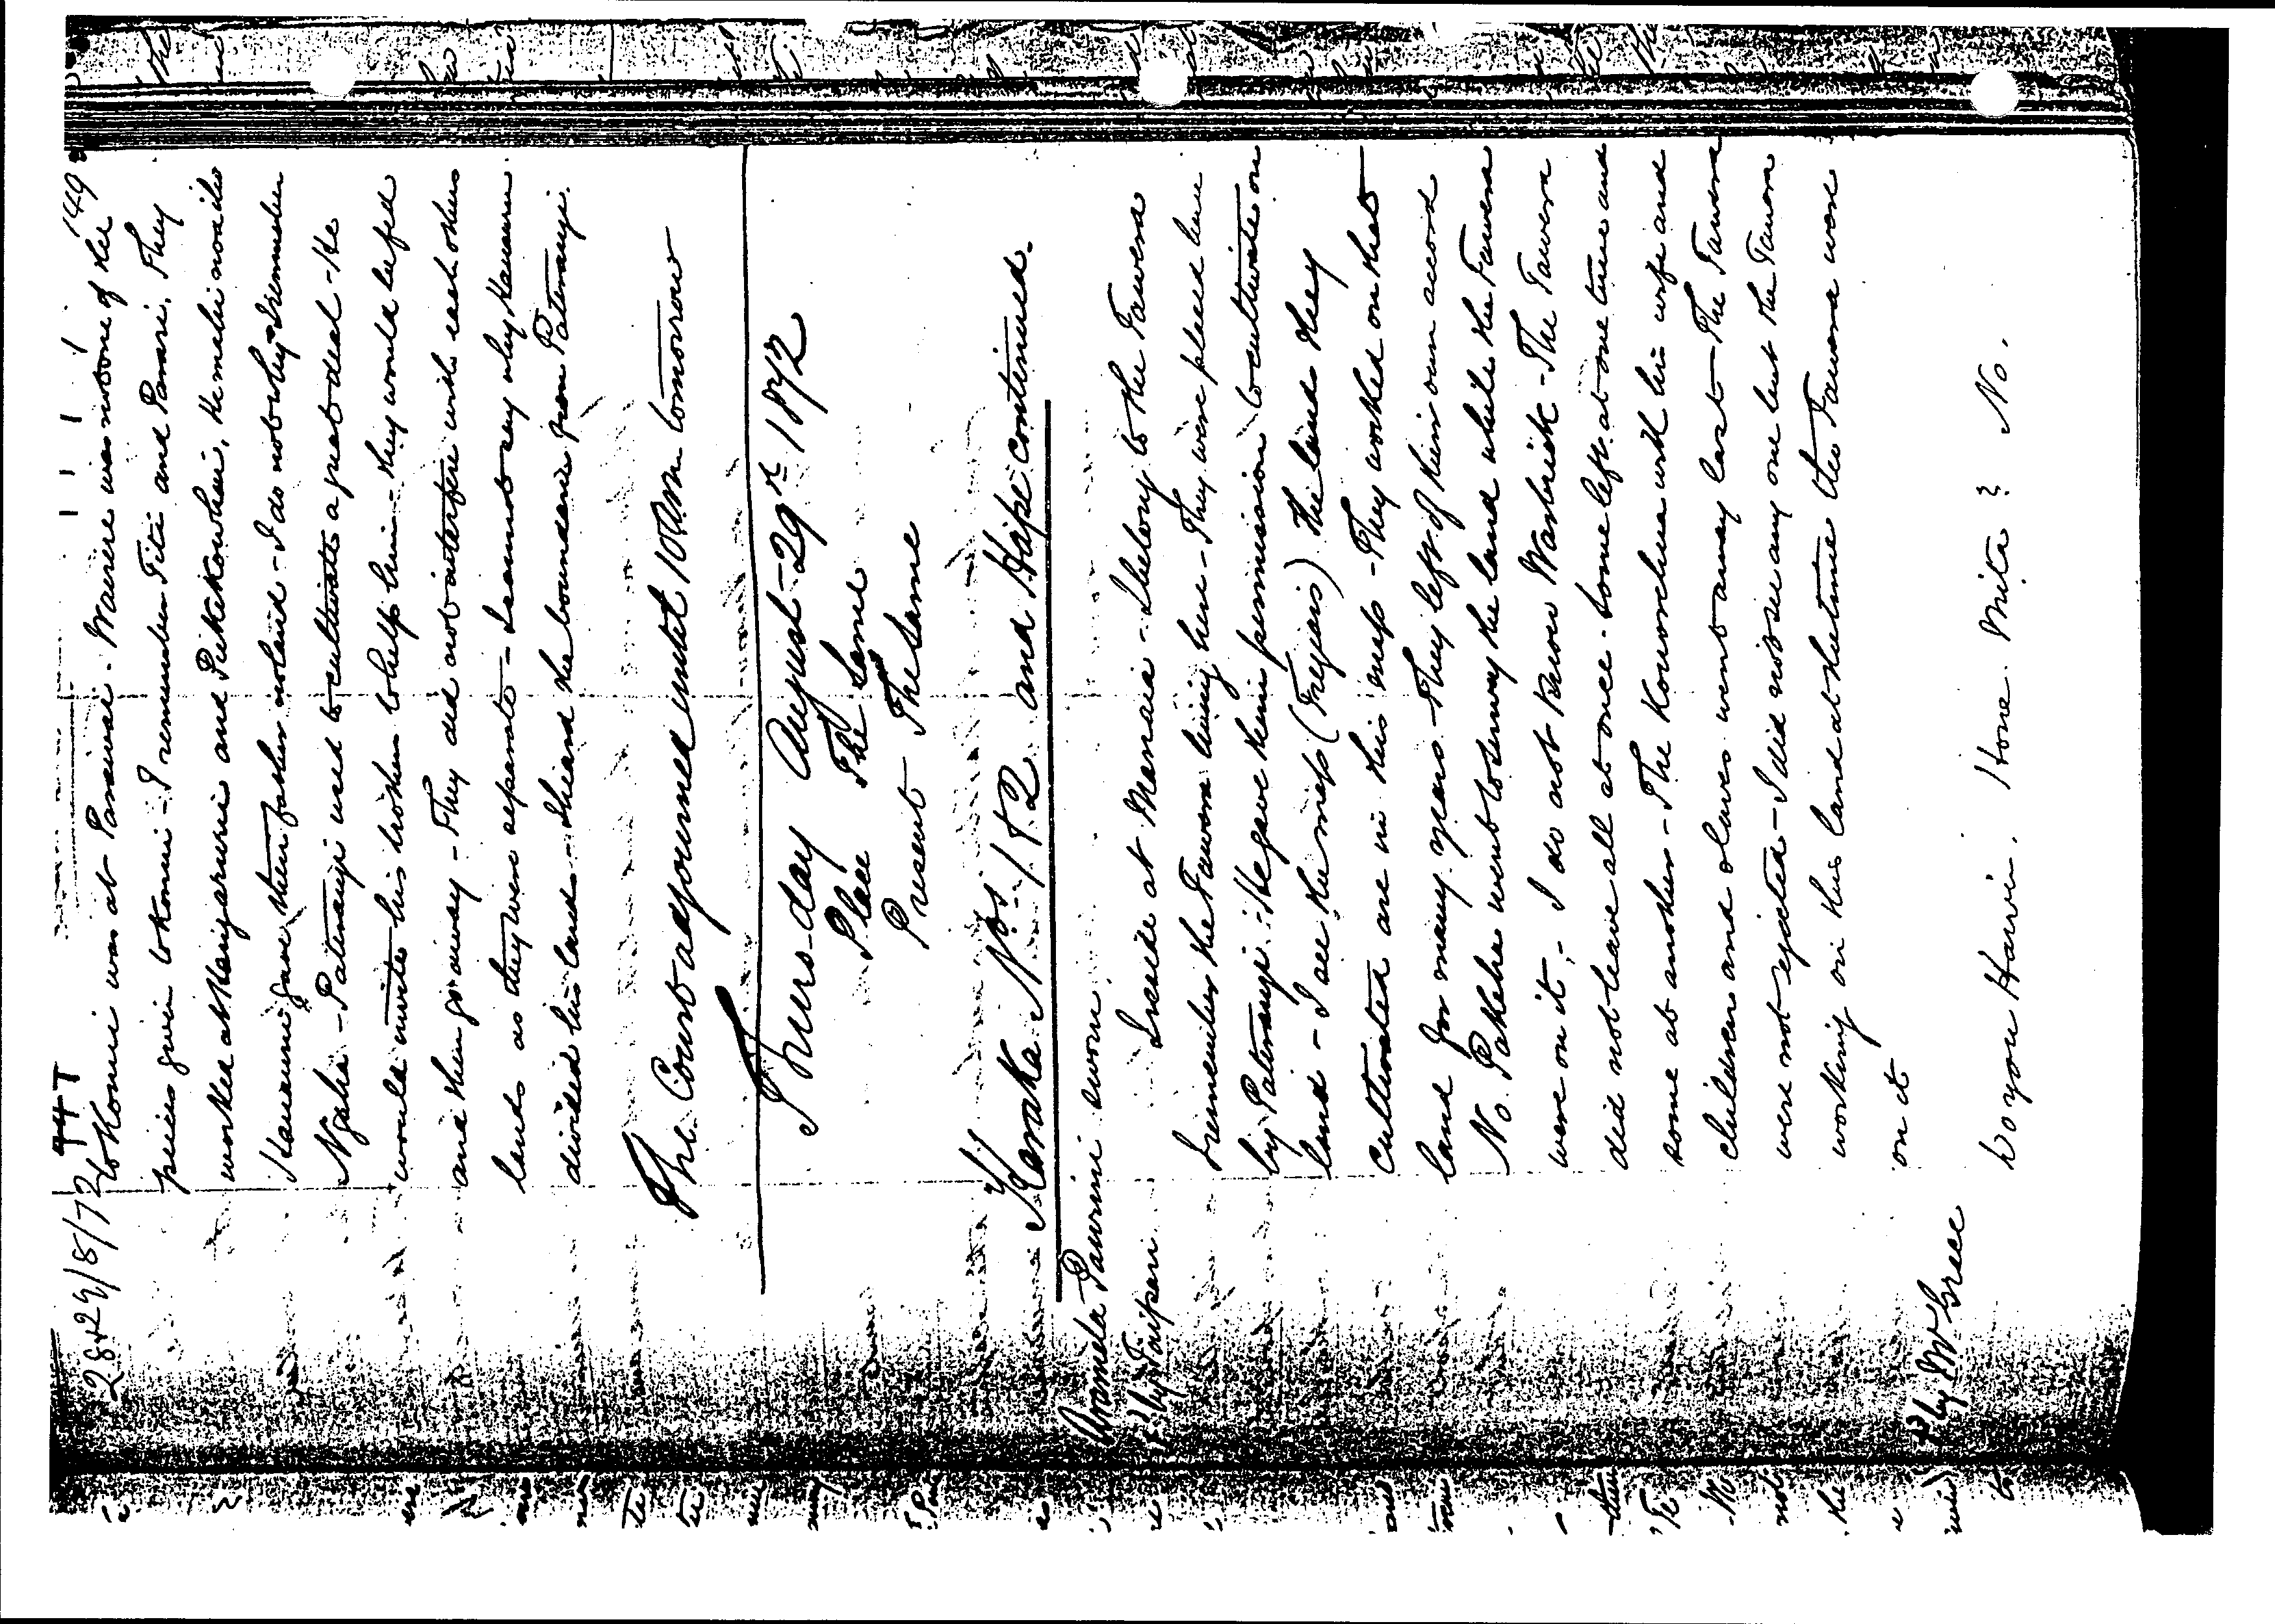 28 & 29/8/72 44T 149
to Konui was at Parawai. Waiere was not one of the
pieces given to Konui - I remember Titi and Parari. They
worked at Hangarurie and Pukekowhai, the mahi noa iho
Hauauru gave their father no land - I do not why I remember
Ngaha - Paterangi used to cultivate a great deal - He
would invite his brothers to help him - they would be fed
and then go away - They did not interfere with each others
lands as they were separate - I cannot say why Hauauru
divided his lands - I heard the boundaries from Paterangi.
The Court adjourned until 10 A.M. tomorrow
Thursday August 29th 1872
Place The Same
Present The Same
Kanaka Nos 1 & 2 and Hape continued.
Arameta Pawiri sworn.
by Taipari I reside at Manaia - I belong to the Tawera
I remember the Tawera living here - They were placed here
by Paterangi. He gave them permission to cultivate on
land - I see the map (Tregais) the land they
cultivated are in this map - They worked on that
land for many years - They left of their own accord
No Pakeha went to survey the land while the Tawera
were on it. - I do not know Warbrick - The Tawera
did not leave all at once. Some left at one time and
some at another - The Kourorehua with his wife and
children and slaves went away last - The Tawera
were not ejected - I did not see any one but the Tawera
working on this land at the time the Tawera were
on it
by Mr Grace
Do you Hawir. Hone Mita? No.